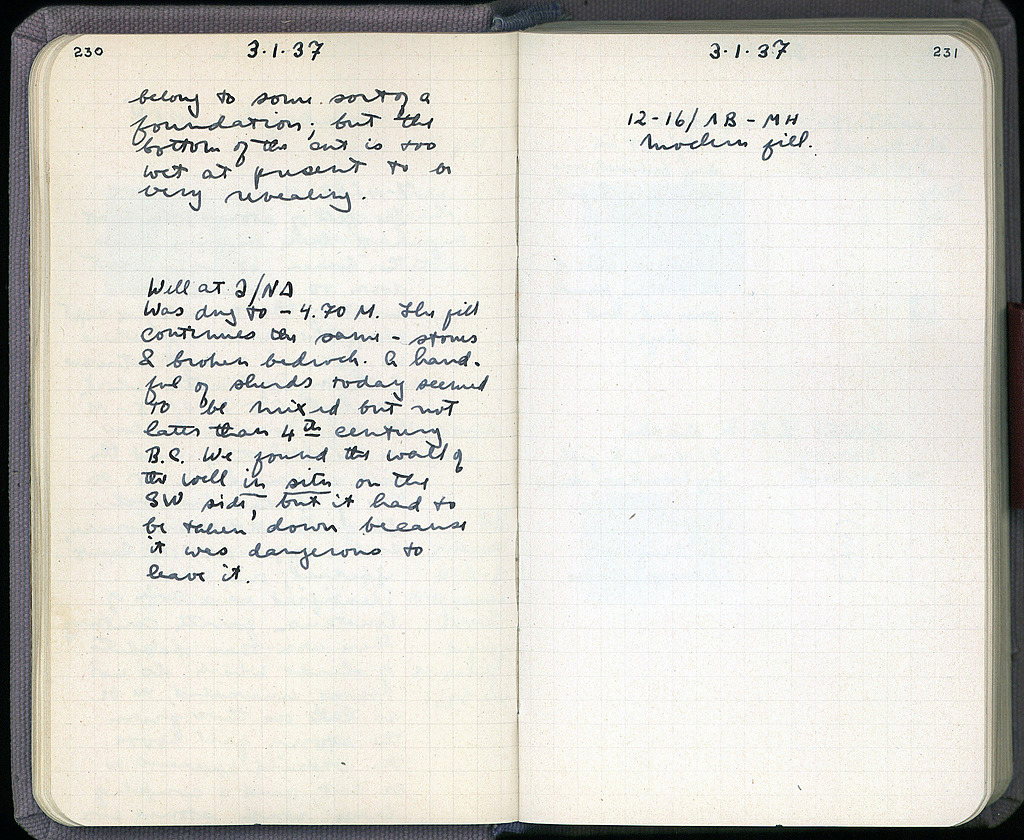 230
3·1·37
belong to some sort of a
foundation; but the
bottom of the cut is too
wet at present to be
very revealing.
Well at
Was dug to - 4.70 M. The fill
continues the same - stones
& broken bedrock. A hand-
ful of sherds today seemed
to be mixed but not
later than 4th century
B.C. We found the wall of
the well in situ on the
SW side, but it had to
be taken down because
it was dangerous to
leave it.
3·1·37
231
12-16/ΛB - MH
Modern fill.